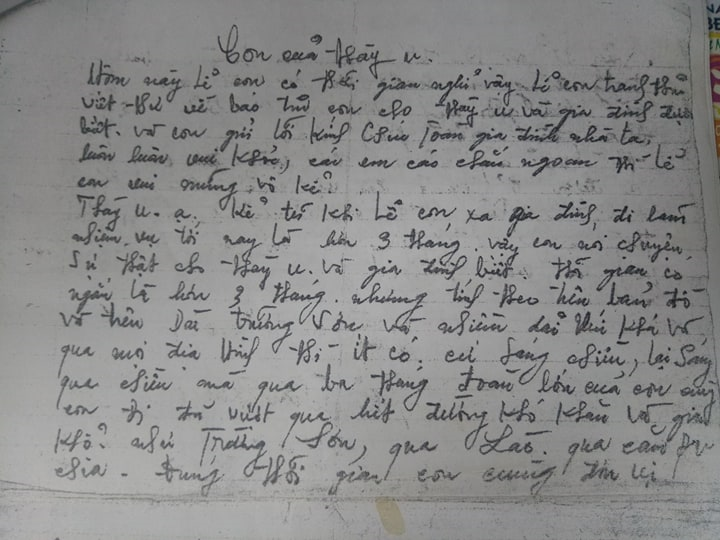 Con của thầy u.
Hôm nay Lê con có thời gian nghỉ vậy Lê con tranh thủ
viết thư về báo tin con cho thầy u và gia đình được
biết. và con gửi lời kính chúc toàn gia đình nhà ta,
luôn luôn vui khỏe, các em cáo chắu ngoan thì Lê
con vui mừng vô kể
Thầy u. ạ. kể từ khi Lê con xa gia đình, đi làm
nhiệm vụ tới nay là hơn 3 tháng. vậy con nói chuyện,
sự thật cho thầy u. và gia đình biết. thời gian có
ngắn là hơn 3 tháng. nhưng tính theo trên bản đồ
và trên Dãi trường Sơn và nhiều khá
qua nơi địa hình thì ít có. cứ sáng chiều, lại sáng
qua chiều mà qua ba tháng đoàn lớn của con cũng
con đi đã vượt qua hết đường khó khăn và gian
khổ. như Trường Sơn, qua Lào. qua căm Pu
chia. Đúng thời gian con cũng đơn vị